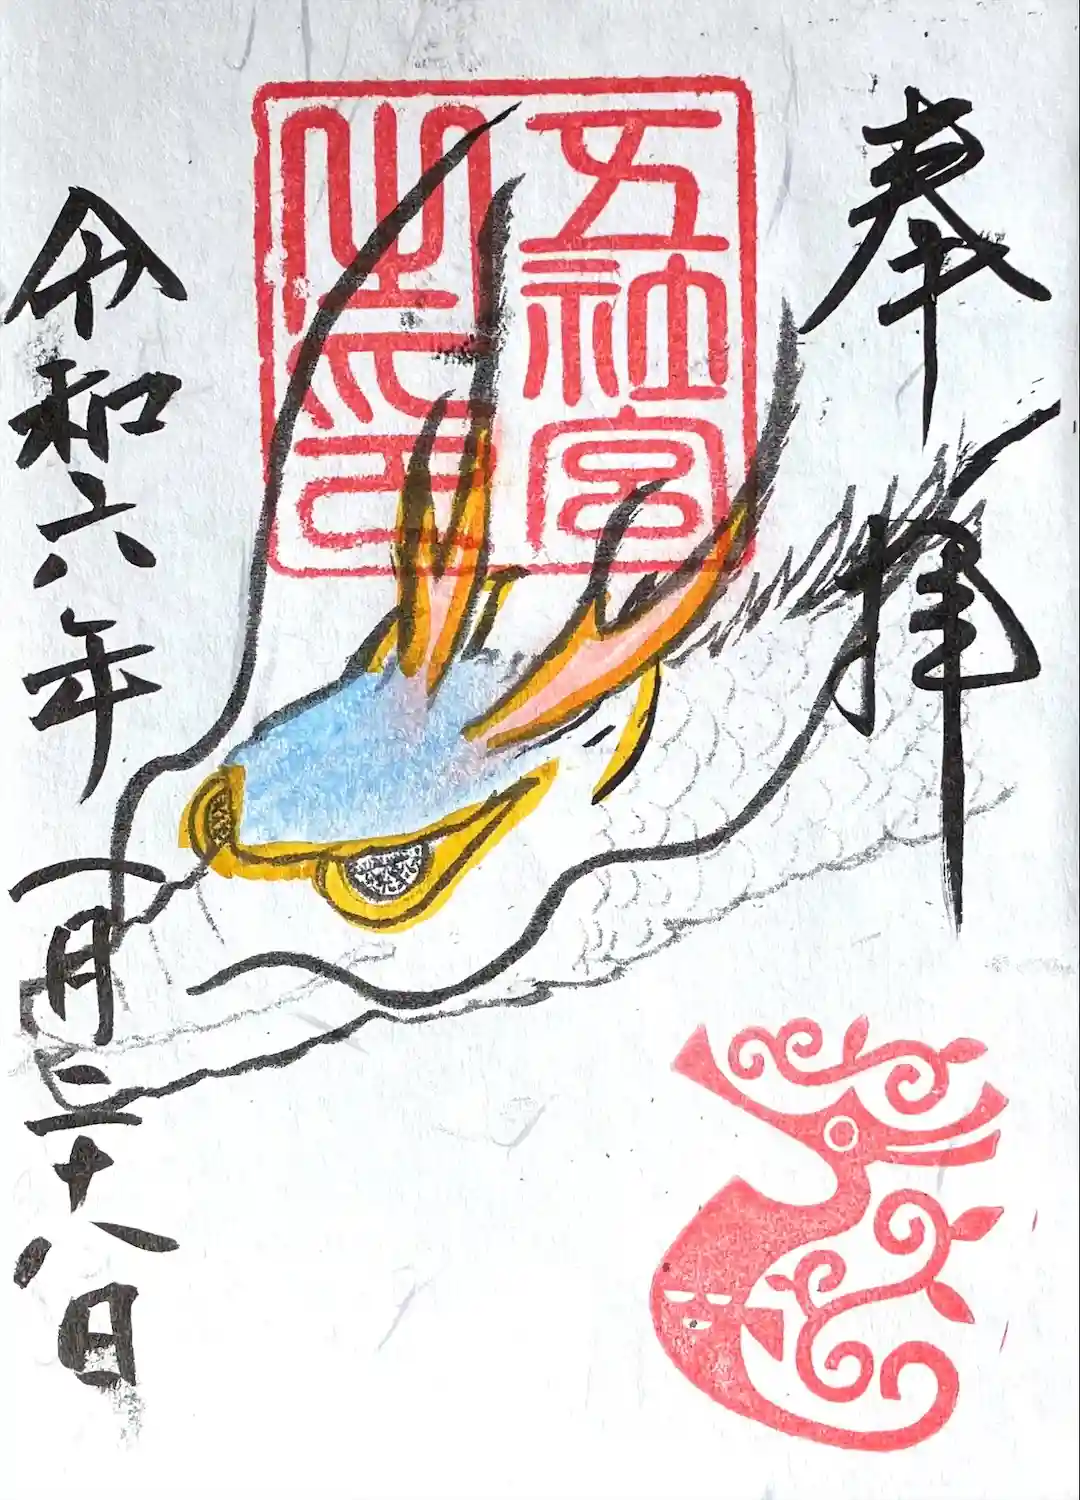 奉拝
五社宮
之印
令和六年一月二十八日